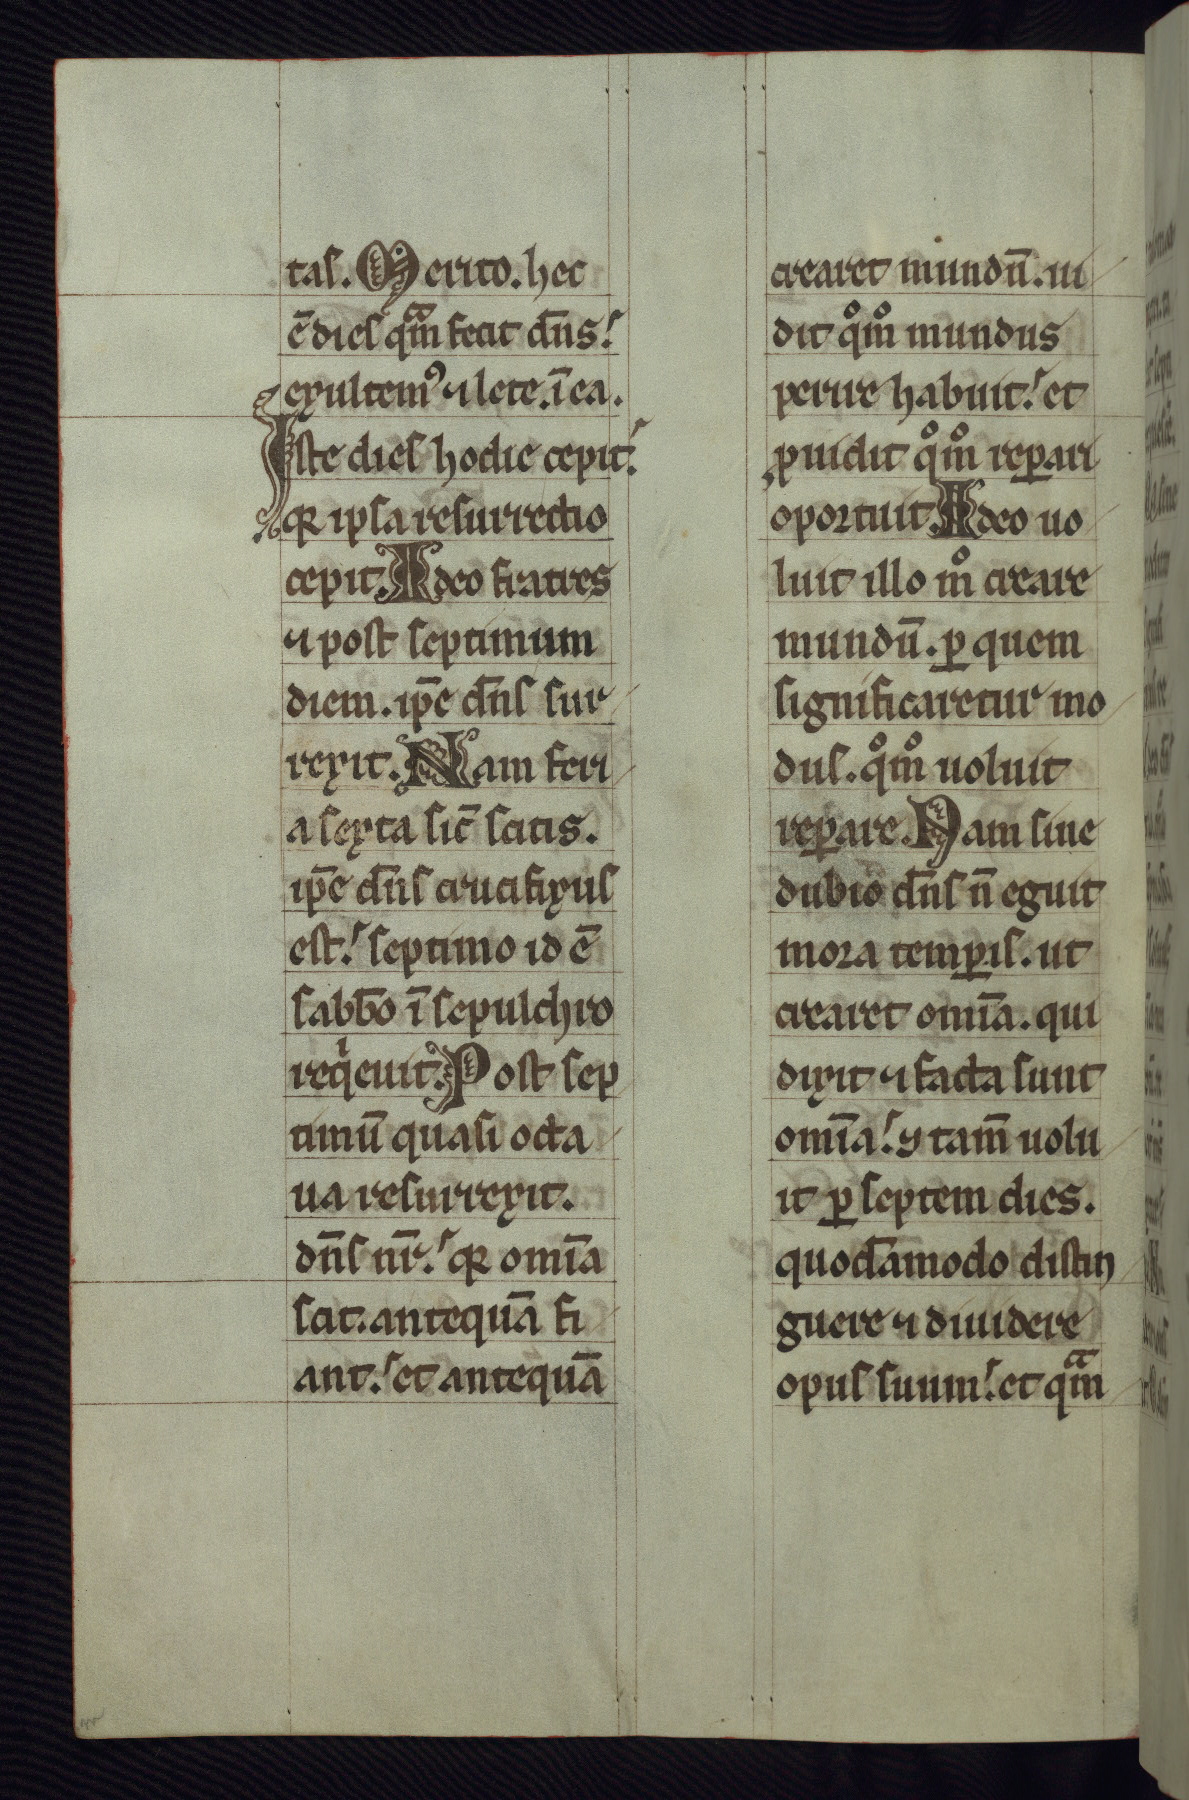 tas. Merito. hec
ē dies qͣm fecit dn̄s.
exultemꝰ ⁊ lete. ī ea.
Iste dies hodie cepit.
qꝛ ipsa resurrectio
cepit. Ideo fratres
⁊ post septimum
diem. ip̄e dn̄s sur
rexit. Nam feri
a sexta sic̄ scitis.
ip̄e dn̄s crucifixus
est. septimo id ē
sabb̄o ī sepulchro
reqͥeuit. Post sep
timū quasi octa
ua resurrexit.
dn̄s nr̄. qꝛ om̄ia
scit. antequā fi
ant. et antequā
crearet mundū. ui
dit qͦmͦ mundus
perire habuit. et
ꝓuidit qͦmͦ reꝑari
oportuit. Ideo uo
luit illo mͦ creare
mundū. ꝑ quem
significaretur mo
dus. qͦmͦ uoluit
reꝑare. Nam sine
dubio dn̄s n̄ eguit
mora temꝑis. ut
crearet om̄ia. qui
dixit ⁊ facta sunt
om̄ia. ⁊ tam̄ uolu
it ꝑ septem dies.
quodāmodo distin
guere ⁊ diuidere
opus suum. et qͣm